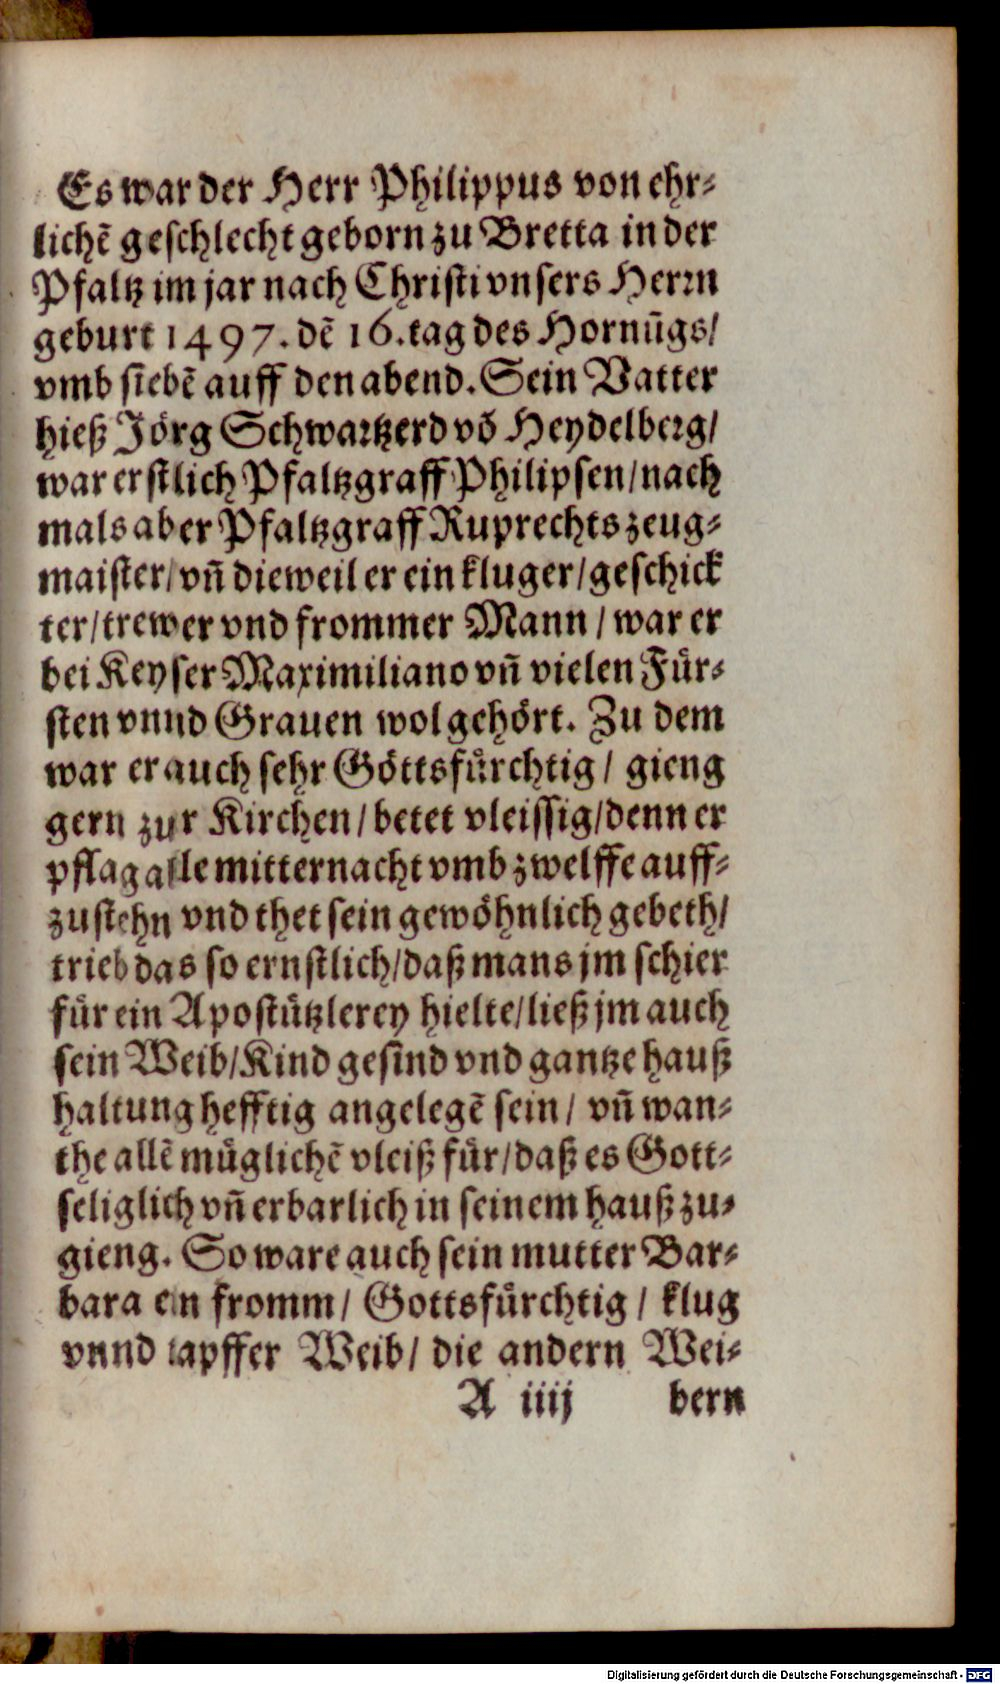 Es war der Herr Philippus von ehr⸗
lichē geschlecht geborn zu Bretta in der
Pfaltz im jar nach Christi vnsers Herrn
geburt 1497. dē 16. tag des Hornūgs/
vmb siebē auff den abend. Sein Vatter
hieß Jörg Schwartzerd vō Heydelberg/
war erstlich Pfaltzgraff Philipsen/nach
mals aber Pfaltzgraff Ruprechts zeug⸗
maister/vn̄ dieweil er ein kluger/geschick
ter/trewer vnd frommer Mann/war er
bei Keyser Maximiliano vn̄ vielen Für⸗
sten vnnd Grauen wol gehört. Zu dem
war er auch sehr Göttsfürchtig/ gieng
gern zur Kirchen/betet vleissig/denn er
pflag alle mitternacht vmb zwelffe auff⸗
zustehn vnd thet sein gewöhnlich gebeth/
trieb das so ernstlich/daß mans jm schier
für ein Apostützlerey hielte/ließ jm auch
sein Weib/Kind gesind vnd gantze hauß
haltung hefftig angelegē sein/ vn̄ wan⸗
the allē müglichē vleiß für/daß es Gott⸗
seliglich vn̄ erbarlich in seinem hauß zu⸗
gieng. So ware auch sein mutter Bar⸗
bara ein fromm/ Gottsfürchtig/ klug
vnnd tapffer Weib/ die andern Wei⸗
A iiij bern
Digitalisierung gefördert durch die Deutsche Forschungsgemeinschaft - DFG